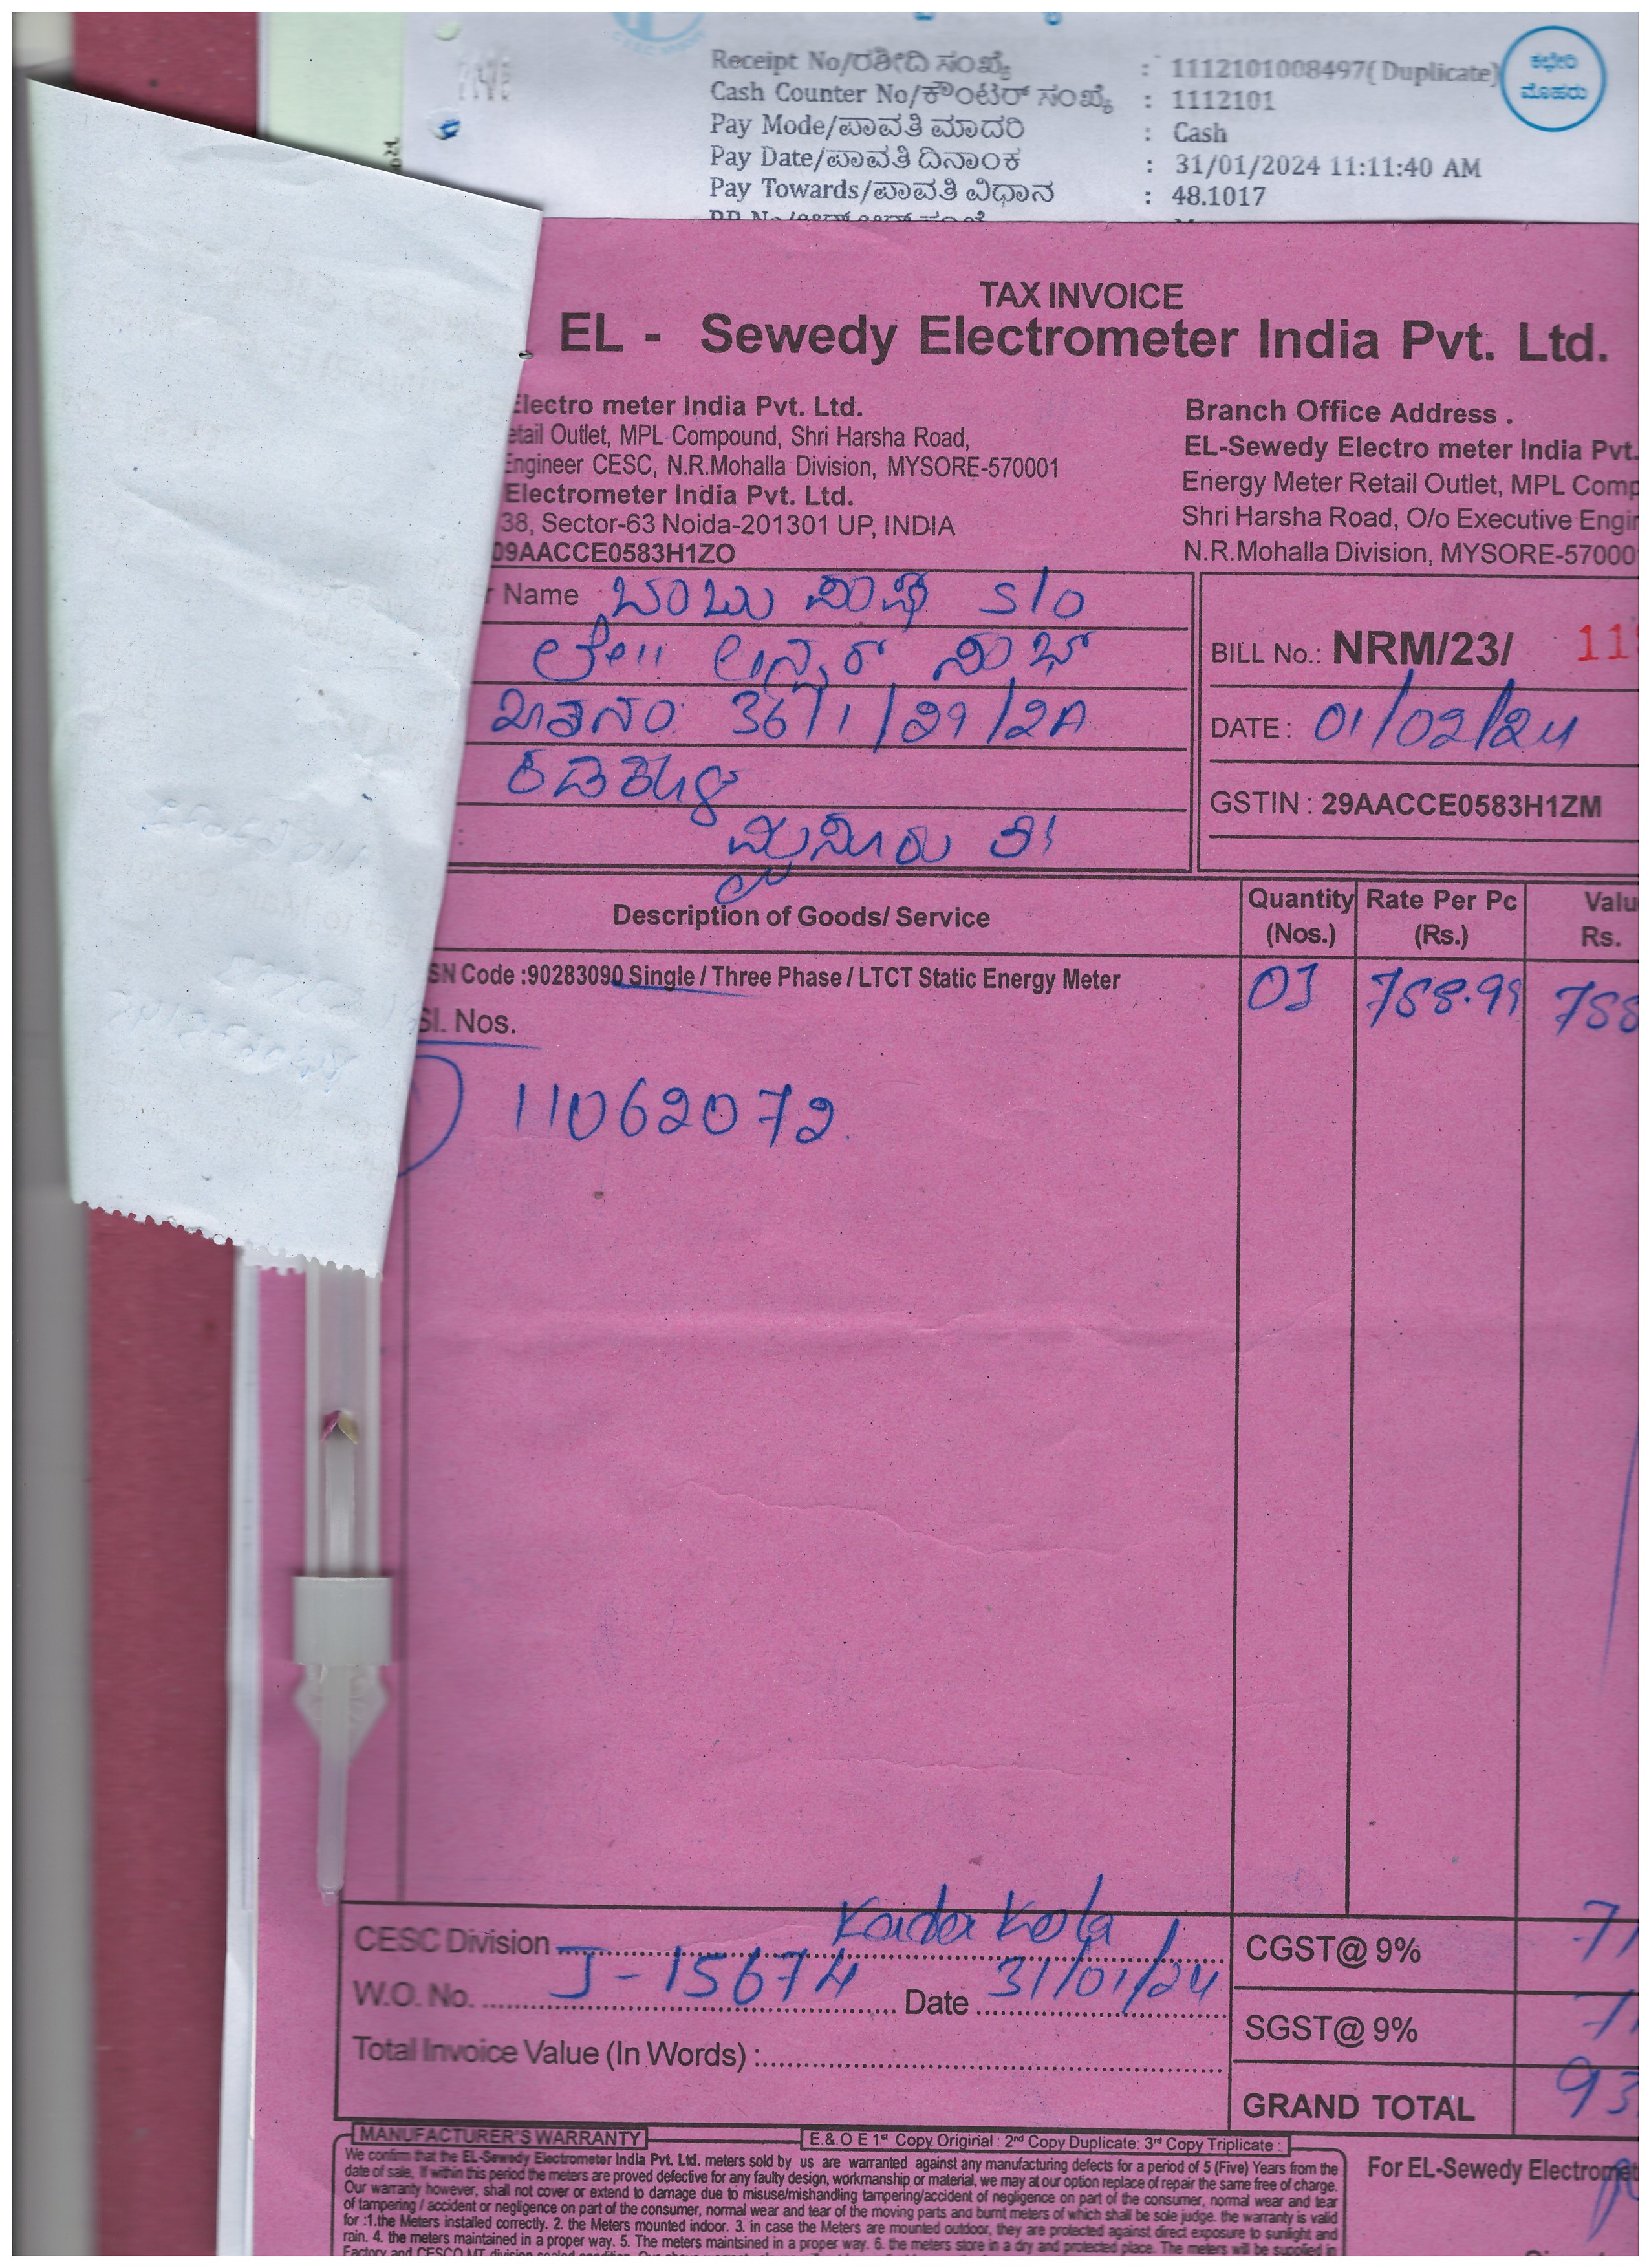 Receipt No/ರಶೀದಿ ಸಂಖ್ಯೆ : 1112101008497(Duplicate)
ಕಛೇರಿ
ಮೊಹರು
Cash Counter No/ಕೌಂಟರ್ ಸಂಖ್ಯೆ : 1112101
Pay Mode/ಪಾವತಿ ಮಾದರಿ : Cash
Pay Date/ಪಾವತಿ ದಿನಾಂಕ : 31/01/2024 11:11:40 AM
Pay Towards/ಪಾವತಿ ವಿಧಾನ : 48.1017
TAX INVOICE
EL - Sewedy Electrometer India Pvt. Ltd.
Electro meter India Pvt. Ltd.
etail Outlet, MPL Compound, Shri Harsha Road,
Engineer CESC, N.R.Mohalla Division, MYSORE-570001
Electrometer India Pvt. Ltd.
38, Sector-63 Noida-201301 UP, INDIA
09AACCE0583H1ZO
Branch Office Address .
EL-Sewedy Electro meter India Pvt.
Energy Meter Retail Outlet, MPL Comp
Shri Harsha Road, O/o Executive Engin
N.R.Mohalla Division, MYSORE-57000
Name S/O
36/1/29/2A
ಕಡಕೊಳ
ಮೈಸೂರು ತಾ
BILL No.: NRM/23/ 11
DATE : 01/02/24
GSTIN : 29AACCE0583H1ZM
Description of Goods/ Service Quantity (Nos.) Rate Per Pc (Rs.) Valu Rs.
SN Code :90283090 Single / Three Phase / LTCT Static Energy Meter 01 788.99 788
Sl. Nos.
11062072
CESC Division Kadakola
W.O. No. J-15674 Date 31/01/24
Total Invoice Value (In Words) :
CGST@ 9% 71
SGST@ 9% 71
GRAND TOTAL 93
MANUFACTURER'S WARRANTY
E.& O E 1st Copy Original : 2nd Copy Duplicate: 3rd Copy Triplicate :
We confirm that the EL-Sewedy Electrometer India Pvt. Ltd. meters sold by us are warranted against any manufacturing defects for a period of 5 (Five) Years from the
date of sale. If within this period the meters are proved defective for any faulty design, workmanship or material, we may at our option replace of repair the same free of charge.
Our warranty however, shall not cover or extend to damage due to misuse/mishandling tampering/accident of negligence on part of the consumer, normal wear and tear
of tampering / accident or negligence on part of the consumer, normal wear and tear of the moving parts and burnt meters of which shall be sole judge. the warranty is valid
for :1.the Meters installed correctly. 2. the Meters mounted indoor. 3. in case the Meters are mounted outdoor, they are protected against direct exposure to sunlight and
rain. 4. the meters maintained in a proper way. 5. The meters maintsined in a proper way. 6. the meters store in a dry and protected place. The meters will be supplied in
For EL-Sewedy Electromet